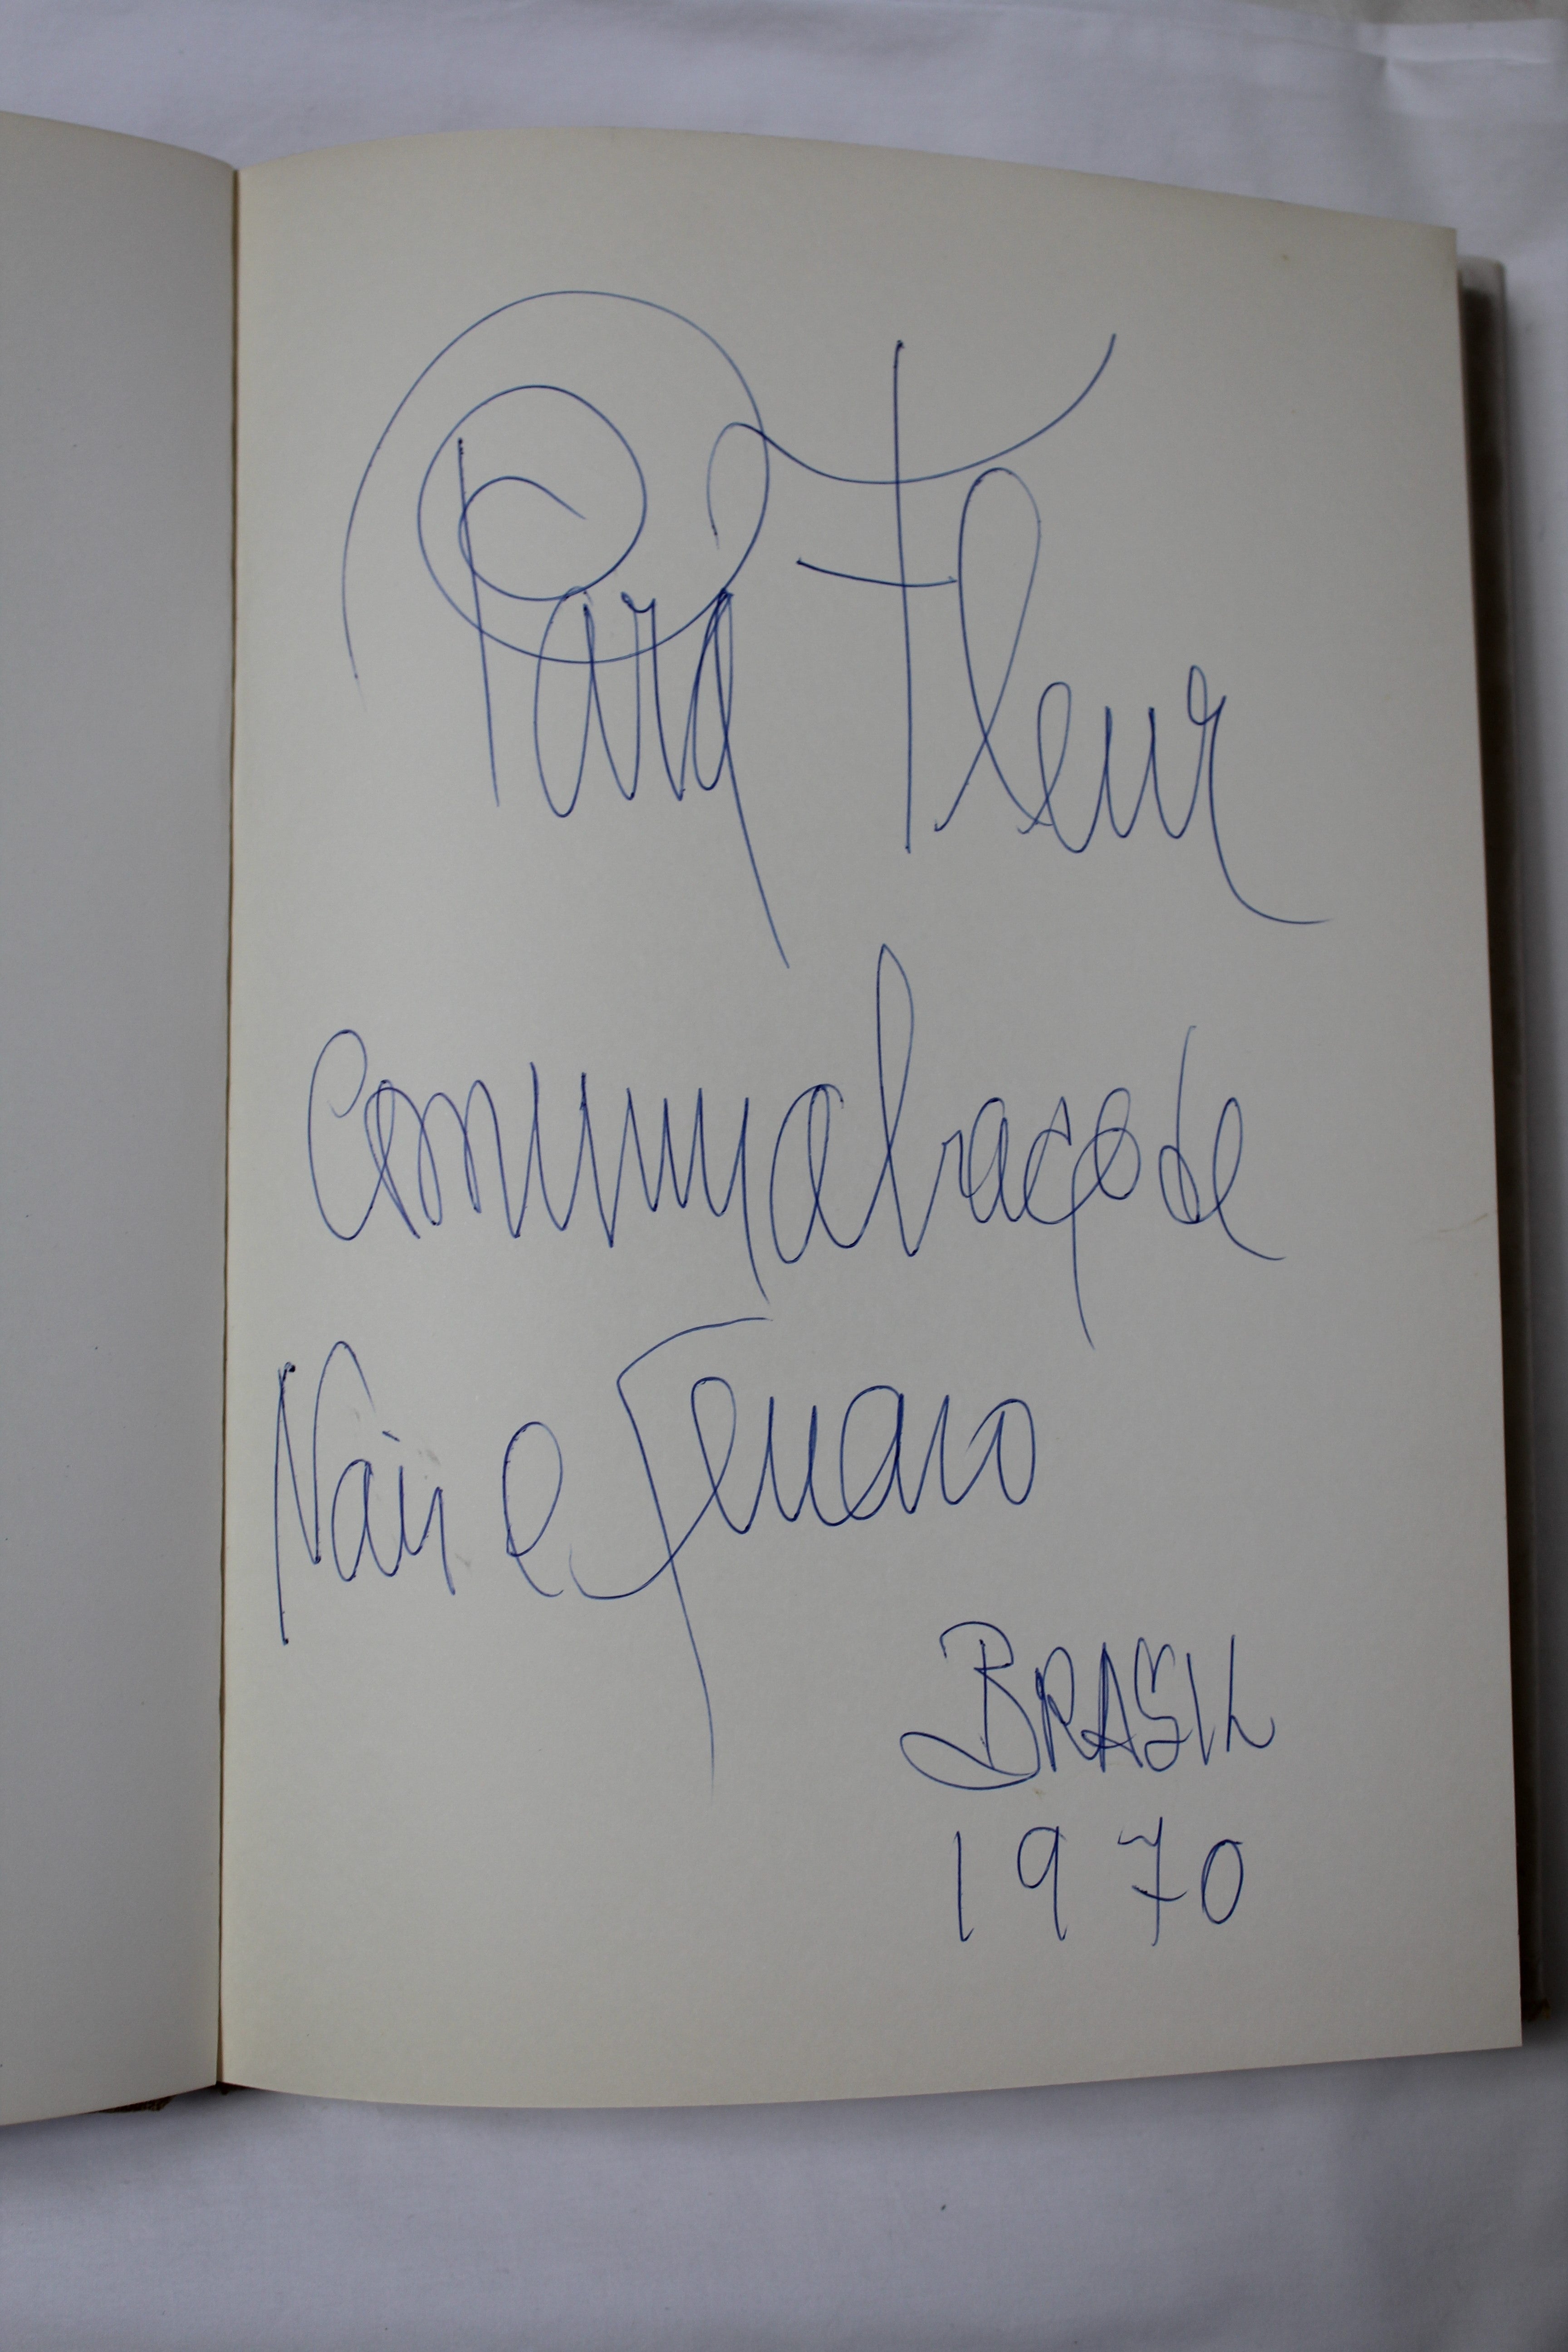 Para Fleur
com um abraço de
Nair e Genaro
BRASIL
1970